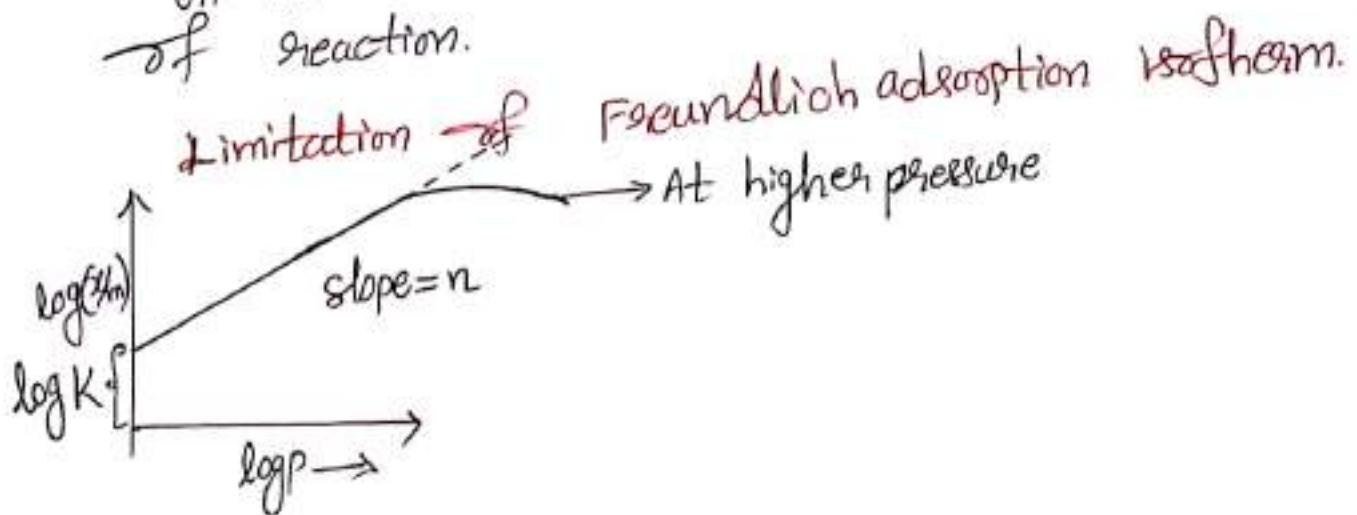 of reaction.
Limitation of Freundlich adsorption isotherm.
At higher pressure
slope=n
log(x/m)
log K
logP